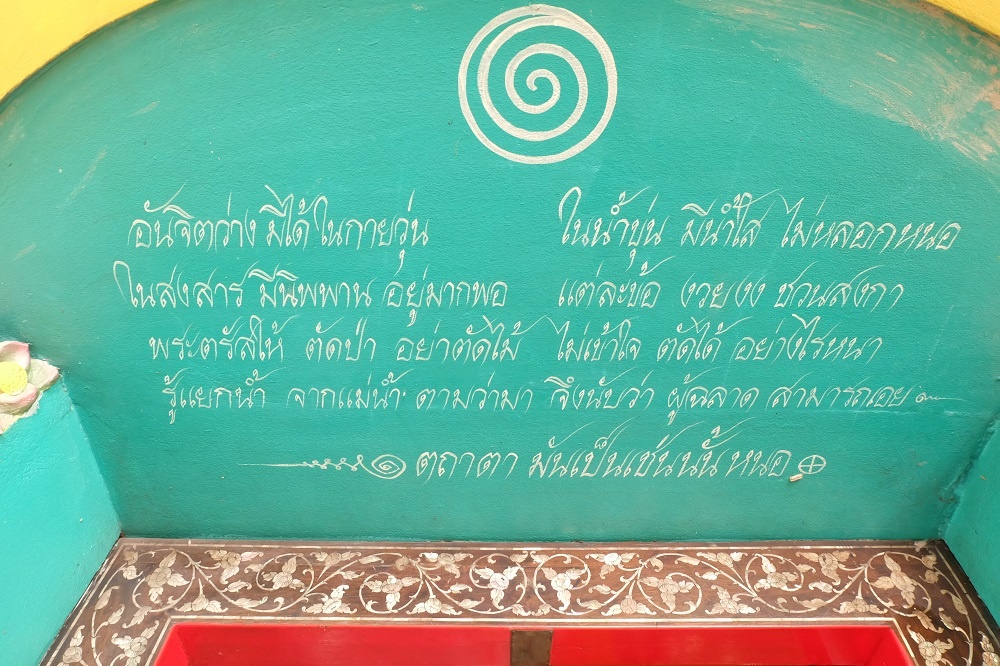 อันจิตว่าง มีได้ ในกายวุ่น ในน้ำขุ่น มีน้ำใส ไม่หลอกหนอ
ในสงสาร มีนิพพาน อยู่มากพอ แต่ละข้อ งวยงง ชวนสงกา
พระตรัสให้ ตัดป่า อย่าตัดไม้ ไม่เข้าใจ ตัดได้ อย่างไรหนา
รู้แยกน้ำ จากแม่น้ำ ตามว่ามา จึงนับว่า ผู้ฉลาด สามารถเอย ๛
๑ ตถาตา มันเป็นเช่นนั้น หนอ